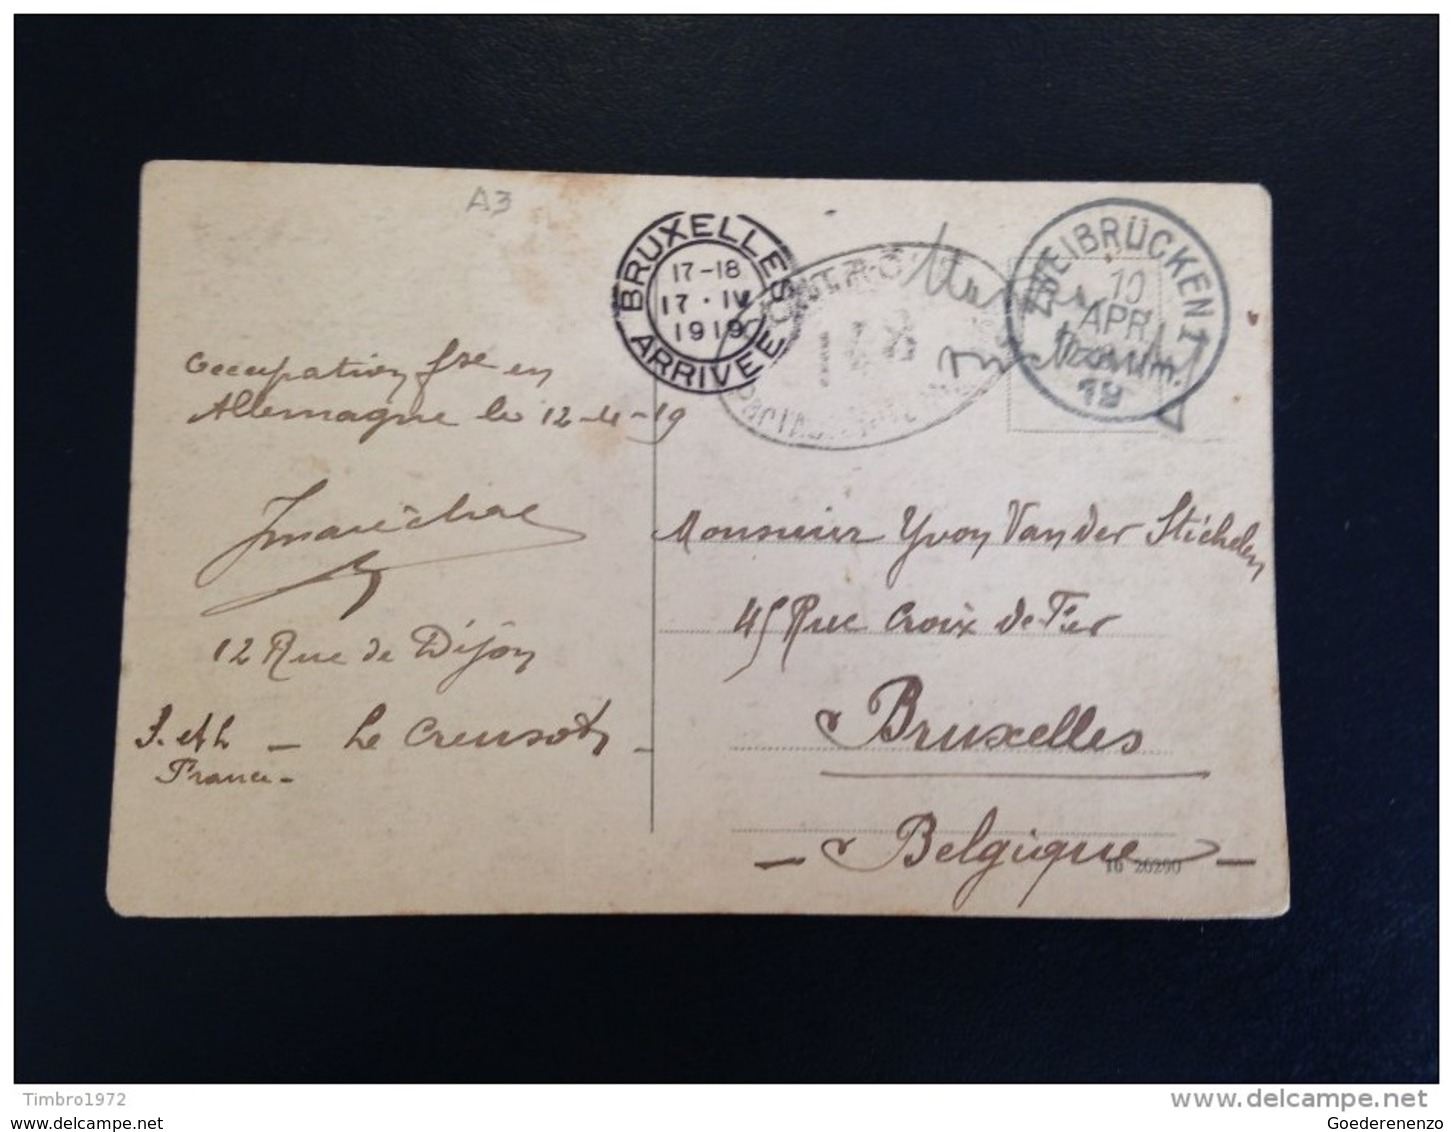 A3
BRUXELLES
17-18
17 · IV
1919
ARRIVEE
ZWEIBRÜCKEN 1
10
APR
19
Occupation fse en
Allemagne le 12-4-19
JMaréchal
12 Rue de Dijon
S. et L. - Le Creusot -
France -
Monsieur Yvon Van der Stichelen
45 Rue Croix de Fer
Bruxelles
- Belgique -
16 20290
Timbro1972
www.delcampe.net
www.delcampe.net
Goederenenzo